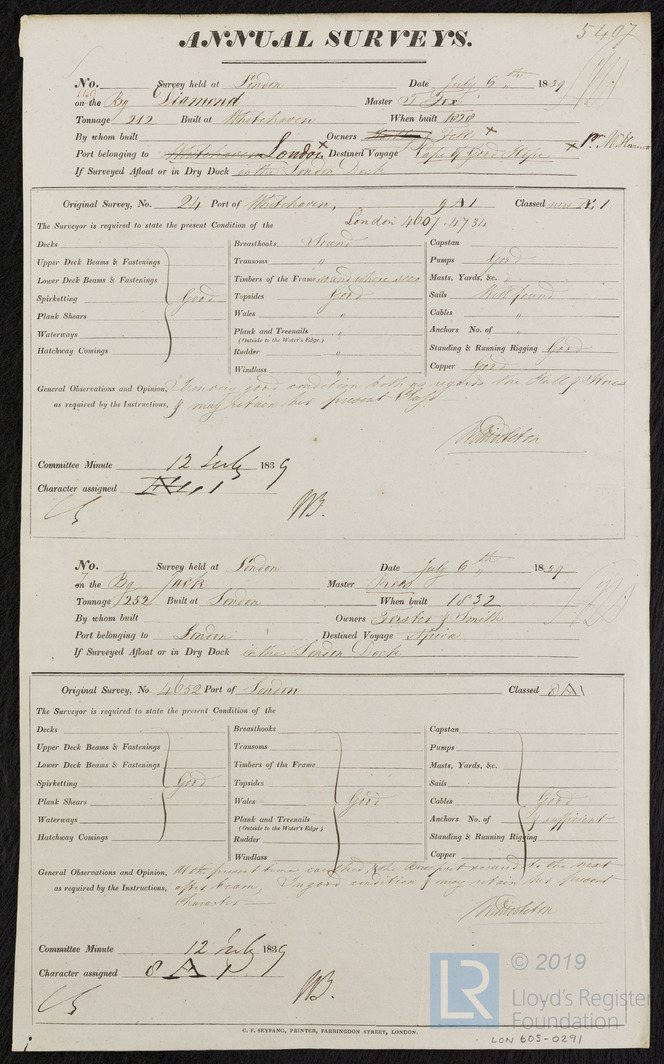 5407
ANNUAL SURVEYS.
No. Survey held at London Date July 6th 1839
on the Bg Diamond Master J Fox
Tonnage 212 Built at Whitehaven When built 1828
By whom built Owners Fell × × pr
Port belonging to Whitehaven London × Destined Voyage Cape of Good Hope
If Surveyed Afloat or in Dry Dock in the London Dock
Original Survey, No. 24 Port of Whitehaven, 9 A 1 Classed A 1
London 4607 . 4734
The Surveyor is required to state the present Condition of the
Decks Breasthooks Sound Capstan
Upper Deck Beams & Fastenings Transoms " Pumps Good
Lower Deck Beams & Fastenings Timbers of the Frame sound where seen Masts, Yards, &c.
Spirketting Good Topsides Good Sails Well found
Plank Shears Wales " Cables "
Waterways Plank and Treenails " Anchors No. of "
(Outside to the Water's Edge.)
Hatchway Comings Rudder " Standing & Running Rigging Good
Windlass " Copper Good
General Observations and Opinion, In very good condition both as regards the Hull & Stores
as required by the Instructions, & may retain her present Class
W Middleton
Committee Minute 12 July 1839
Character assigned A 1
No. Survey held at London Date July 6th 1839
on the Bg Jack Master
Tonnage 252 Built at London When built 1832
By whom built Owners Forster & Smith
Port belonging to London Destined Voyage Africa
If Surveyed Afloat or in Dry Dock in the London Dock
Original Survey, No. 4652 Port of London Classed 8 A 1
The Surveyor is required to state the present Condition of the
Decks Breasthooks Capstan
Upper Deck Beams & Fastenings Transoms Pumps
Lower Deck Beams & Fastenings Timbers of the Frame Masts, Yards, &c.
Spirketting Good Topsides Sails
Plank Shears Wales Good Cables Good
Waterways Plank and Treenails Anchors No. of & sufficient
(Outside to the Water's Edge.)
Hatchway Comings Rudder Standing & Running Rigging
Windlass Copper
General Observations and Opinion, At the present time to the next
as required by the Instructions, after beam, In good condition & may retain her present
Character
W Middleton
Committee Minute 12 July 1839
Character assigned 8 A 1
C. F. SEYFANG, PRINTER, FARRINGDON STREET, LONDON.
LR © 2019
Lloyd's Register
Foundation
LON 605-0291